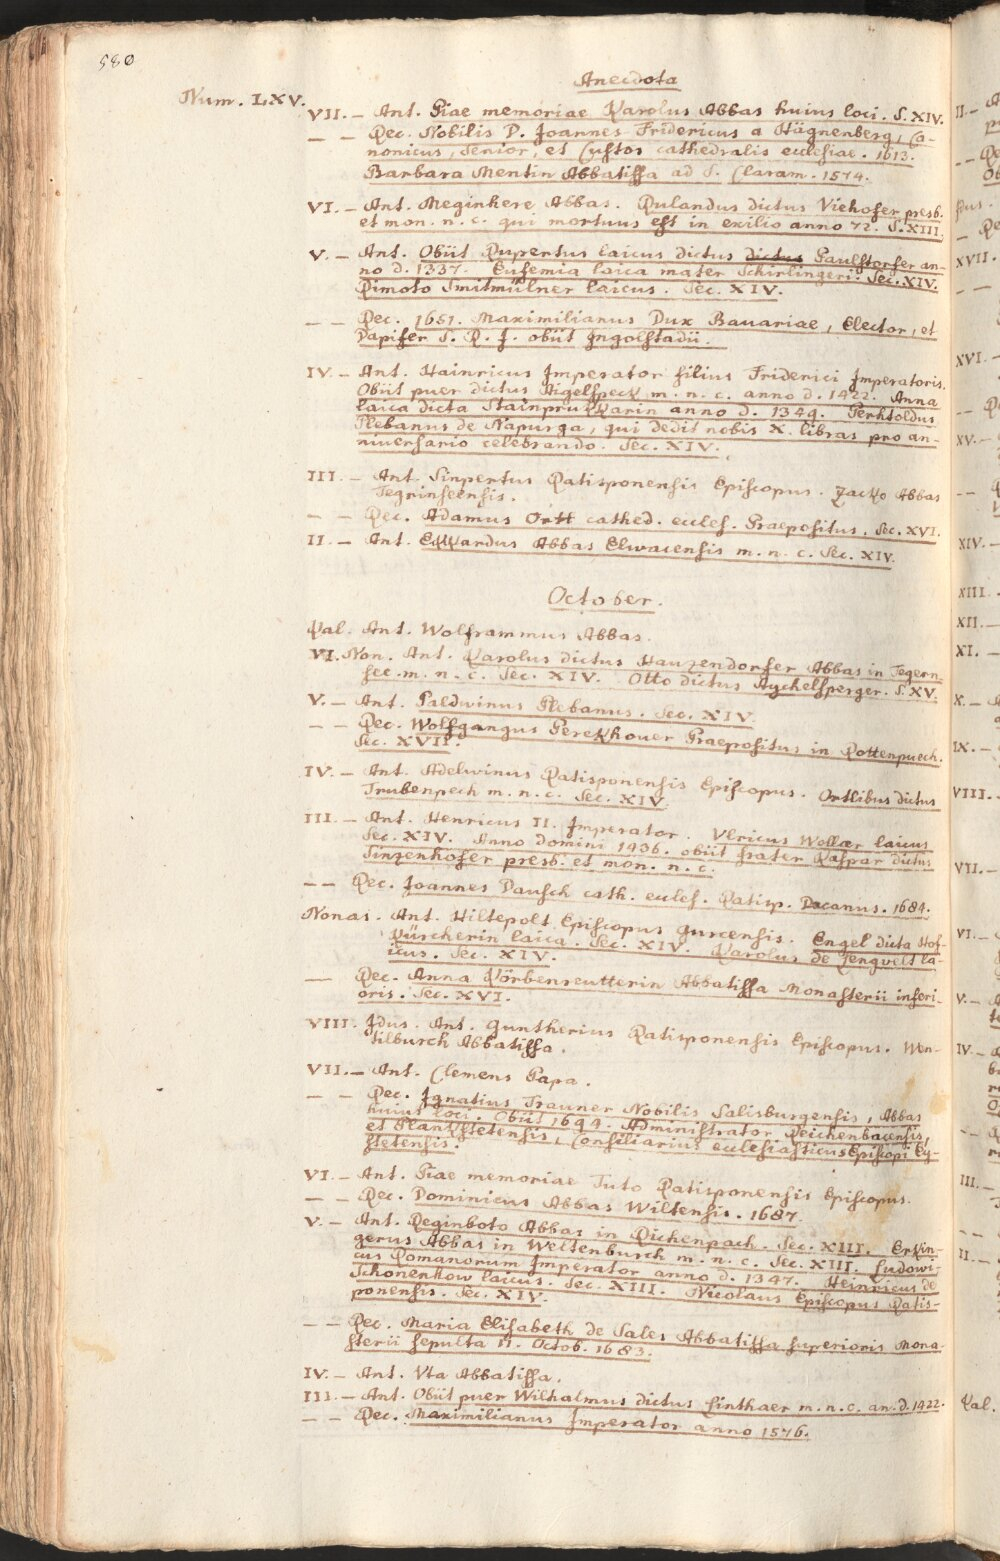 580
Anecdota
Num. LXV.
VII. — Ant. Piae memoriae Karolus Abbas huius loci. S. XIV.
— — Rec. Nobilis D. Joannes Fridericus a Hägnenberg, Ca-
nonicus, Senior, et Custos cathedralis ecclesiae. 1613.
Barbara Mentin Abbatissa ad S. Claram. 1574.
VI. — Ant. Meginhere Abbas. Rulandus dictus Viehofer presb.
et mon. n. c. qui mortuus est in exilio anno 72. S. XIII.
V. — Ant. Obiit Rupertus laicus dictus dictus Paulstorfer an-
no d. 1337. Eufemia laica mater Schirlingeri. Sec. XIV.
Dimoto Smitmülner laicus. Sec. XIV.
— — Rec. 1651. Maximilianus Dux Bauariae, Elector, et
Dapifer S. R. J. obiit Ingolstadii.
IV. — Ant. Hainricus Imperator filius Friderici Imperatoris.
Obiit puer dictus Aigelspeck m. n. c. anno d. 1422. Anna
laica dicta Stainprukkarin anno d. 1349. Perhtoldus
Plebanus de Napurga, qui dedit nobis X. libras pro an-
niuersario celebrando. Sec. XIV.
III. — Ant. Sinpertus Ratisponensis Episcopus. Zacko Abbas
Tegrinseensis.
— — Rec. Adamus Ortt cathed. eccles. Praepositus. Sec. XVI.
II. — Ant. Ekkardus Abbas Elwacensis m. n. c. Sec. XIV.
October.
Kal. Ant. Wolframmus Abbas.
VI. Non. Ant. Karolus dictus Hauzendorfer Abbas in Tegern-
see. m. n. c. Sec. XIV. Otto dictus Aychelsperger. S. XV.
V. — Ant. Paldwinus Plebanus. Sec. XIV.
— — Rec. Wolfgangus Perekhouer Praepositus in Rottenpuech.
Sec. XVII.
IV. — Ant. Adelwinus Ratisponensis Episcopus. Ortlibus dictus
Trubenpech m. n. c. Sec. XIV.
III. — Ant. Henricus II. Imperator. Vlricus Wollær laicus
Sec. XIV. Anno domini 1436. obiit frater Kaspar dictus
Sinzenhofer presb. et mon. n. c.
— — Rec. Joannes Dausch cath. eccles. Ratisp. Decanus. 1684.
Nonas. Ant. Hiltepolt Episcopus Gurcensis. Engel dicta Hof-
kürcherin laica. Sec. XIV. Karolus de Lengvelt la-
icus. Sec. XIV.
— Rec. Anna Körbenreutterin Abbatissa Monasterii inferi-
oris. Sec. XVI.
VIII. Idus. Ant. Guntherius Ratisponensis Episcopus. Wen-
tilburch Abbatissa.
VII. — Ant. Clemens Papa.
— — Rec. Ignatius Trauner Nobilis Salisburgensis, Abbas
huius loci. Obiit 1694. Administrator Reichenbacensis,
et Plankstetensis, Consiliarius ecclesiasticus Episcopi Ey-
stetensis.
VI. — Ant. Piae memoriae Tuto Ratisponensis Episcopus.
— — Rec. Dominicus Abbas Wiltensis. 1687.
V. — Ant. Reginboto Abbas in Richenpach. Sec. XIII. Erkin-
gerus Abbas in Weltenburch m. n. c. Sec. XIII. Ludowi-
cus Romanorum Imperator anno d. 1347. Heinricus de
Schonenkow laicus. Sec. XIII. Nicolaus Episcopus Ratis-
ponensis. Sec. XIV.
— — Rec. Maria Elisabeth de Sales Abbatissa superioris Mona-
sterii sepulta 11. Octob. 1683.
IV. — Ant. Vta Abbatissa.
III. — Ant. Obiit puer Wilhalmus dictus Sinthaer m. n. c. an. d. 1422.
— — Rec. Maximilianus Imperator anno 1576.